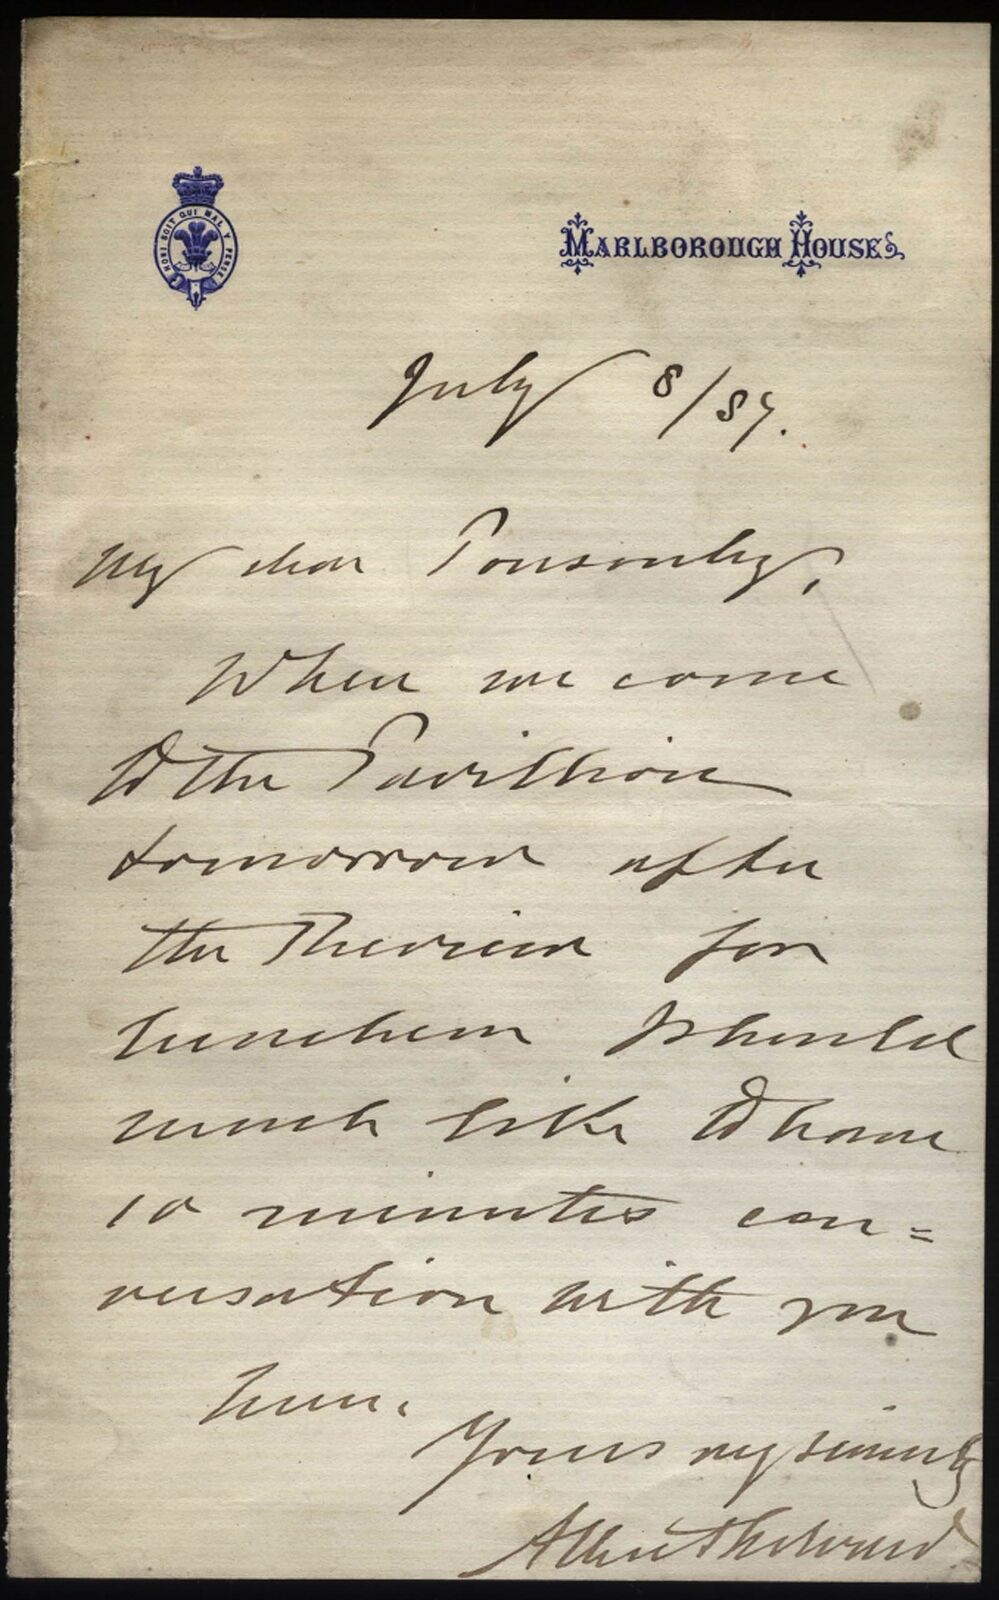 HONI SOIT QUI MAL Y PENSE
MARLBOROUGH HOUSE
July 8/87.
My dear Ponsonby,
When we come
to the Pavillion
tomorrow after
the Review for
luncheon I should
much like to have
10 minutes con=
versation with you
Yours very sincerely
Albert Edward